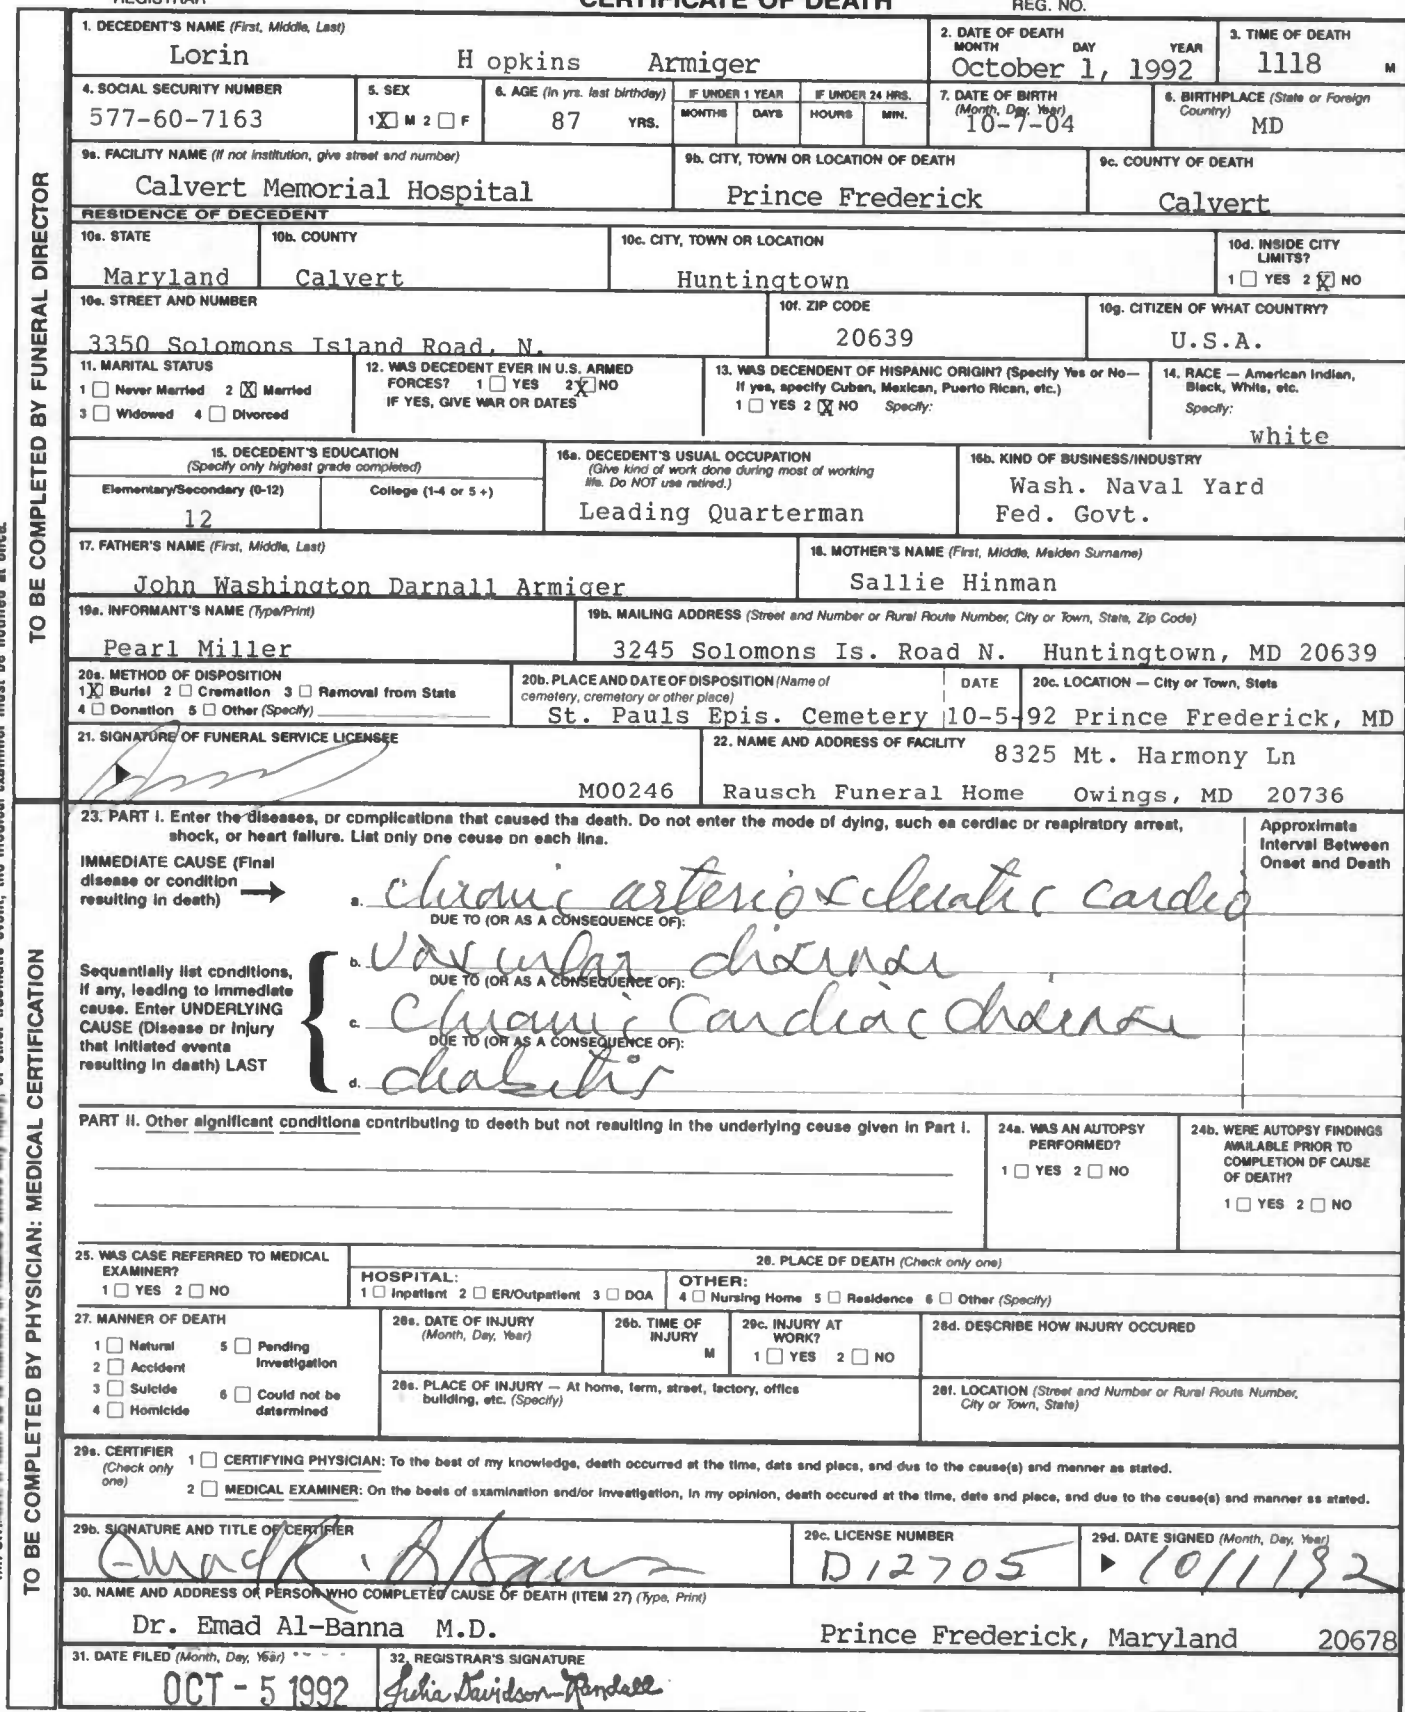 REGISTRAR CERTIFICATE OF DEATH REG. NO.
TO BE COMPLETED BY FUNERAL DIRECTOR
1. DECEDENT'S NAME (First, Middle, Last)
Lorin H opkins Armiger
2. DATE OF DEATH
MONTH DAY YEAR
October 1, 1992
3. TIME OF DEATH
1118 M
4. SOCIAL SECURITY NUMBER
577-60-7163
5. SEX
1 X M 2 ☐ F
6. AGE (In yrs. last birthday)
87 YRS.
IF UNDER 1 YEAR
MONTHS DAYS
IF UNDER 24 HRS.
HOURS MIN.
7. DATE OF BIRTH
(Month, Day, Year)
10-7-04
8. BIRTHPLACE (State or Foreign
Country)
MD
9a. FACILITY NAME (If not institution, give street and number)
Calvert Memorial Hospital
9b. CITY, TOWN OR LOCATION OF DEATH
Prince Frederick
9c. COUNTY OF DEATH
Calvert
RESIDENCE OF DECEDENT
10a. STATE
Maryland
10b. COUNTY
Calvert
10c. CITY, TOWN OR LOCATION
Huntingtown
10d. INSIDE CITY
LIMITS?
1 ☐ YES 2 X NO
10e. STREET AND NUMBER
3350 Solomons Island Road, N.
10f. ZIP CODE
20639
10g. CITIZEN OF WHAT COUNTRY?
U.S.A.
11. MARITAL STATUS
1 ☐ Never Married 2 X Married
3 ☐ Widowed 4 ☐ Divorced
12. WAS DECEDENT EVER IN U.S. ARMED
FORCES? 1 ☐ YES 2 X NO
IF YES, GIVE WAR OR DATES
13. WAS DECENDENT OF HISPANIC ORIGIN? (Specify Yes or No—
If yes, specify Cuban, Mexican, Puerto Rican, etc.)
1 ☐ YES 2 X NO Specify:
14. RACE — American Indian,
Black, White, etc.
Specify:
white
15. DECEDENT'S EDUCATION
(Specify only highest grade completed)
Elementary/Secondary (0-12) College (1-4 or 5 +)
12
16a. DECEDENT'S USUAL OCCUPATION
(Give kind of work done during most of working
life. Do NOT use retired.)
Leading Quarterman
16b. KIND OF BUSINESS/INDUSTRY
Wash. Naval Yard
Fed. Govt.
17. FATHER'S NAME (First, Middle, Last)
John Washington Darnall Armiger
18. MOTHER'S NAME (First, Middle, Maiden Surname)
Sallie Hinman
19a. INFORMANT'S NAME (Type/Print)
Pearl Miller
19b. MAILING ADDRESS (Street and Number or Rural Route Number, City or Town, State, Zip Code)
3245 Solomons Is. Road N. Huntingtown, MD 20639
20a. METHOD OF DISPOSITION
1 X Burial 2 ☐ Cremation 3 ☐ Removal from State
4 ☐ Donation 5 ☐ Other (Specify)
20b. PLACE AND DATE OF DISPOSITION (Name of
cemetery, crematory or other place)
St. Pauls Epis. Cemetery
DATE
10-5-92
20c. LOCATION — City or Town, State
Prince Frederick, MD
21. SIGNATURE OF FUNERAL SERVICE LICENSEE
M00246
22. NAME AND ADDRESS OF FACILITY 8325 Mt. Harmony Ln
Rausch Funeral Home Owings, MD 20736
TO BE COMPLETED BY PHYSICIAN: MEDICAL CERTIFICATION
23. PART I. Enter the diseases, or complications that caused the death. Do not enter the mode of dying, such as cardiac or respiratory arrest,
shock, or heart failure. List only one cause on each line.
Approximate
Interval Between
Onset and Death
IMMEDIATE CAUSE (Final
disease or condition
resulting in death)
a. chronic arteriosclerotic cardio
DUE TO (OR AS A CONSEQUENCE OF):
Sequentially list conditions,
if any, leading to immediate
cause. Enter UNDERLYING
CAUSE (Disease or injury
that initiated events
resulting in death) LAST
b. vascular disease
DUE TO (OR AS A CONSEQUENCE OF):
c. Chronic Cardiac disease
DUE TO (OR AS A CONSEQUENCE OF):
d. diabetis
PART II. Other significant conditions contributing to death but not resulting in the underlying cause given in Part I.
24a. WAS AN AUTOPSY
PERFORMED?
1 ☐ YES 2 ☐ NO
24b. WERE AUTOPSY FINDINGS
AVAILABLE PRIOR TO
COMPLETION OF CAUSE
OF DEATH?
1 ☐ YES 2 ☐ NO
25. WAS CASE REFERRED TO MEDICAL
EXAMINER?
1 ☐ YES 2 ☐ NO
26. PLACE OF DEATH (Check only one)
HOSPITAL:
1 ☐ Inpatient 2 ☐ ER/Outpatient 3 ☐ DOA
OTHER:
4 ☐ Nursing Home 5 ☐ Residence 6 ☐ Other (Specify)
27. MANNER OF DEATH
1 ☐ Natural 5 ☐ Pending
2 ☐ Accident Investigation
3 ☐ Suicide 6 ☐ Could not be
4 ☐ Homicide determined
28a. DATE OF INJURY
(Month, Day, Year)
28b. TIME OF
INJURY
M
29c. INJURY AT
WORK?
1 ☐ YES 2 ☐ NO
28d. DESCRIBE HOW INJURY OCCURED
28e. PLACE OF INJURY — At home, farm, street, factory, office
building, etc. (Specify)
28f. LOCATION (Street and Number or Rural Route Number,
City or Town, State)
29a. CERTIFIER
(Check only
one)
1 ☐ CERTIFYING PHYSICIAN: To the best of my knowledge, death occurred at the time, date and place, and due to the cause(s) and manner as stated.
2 ☐ MEDICAL EXAMINER: On the basis of examination and/or investigation, in my opinion, death occured at the time, date and place, and due to the cause(s) and manner as stated.
29b. SIGNATURE AND TITLE OF CERTIFIER
29c. LICENSE NUMBER
D12705
29d. DATE SIGNED (Month, Day, Year)
10/1/92
30. NAME AND ADDRESS OF PERSON WHO COMPLETED CAUSE OF DEATH (ITEM 27) (Type, Print)
Dr. Emad Al-Banna M.D. Prince Frederick, Maryland 20678
31. DATE FILED (Month, Day, Year)
OCT - 5 1992
32. REGISTRAR'S SIGNATURE
Julia Davidson-Randall